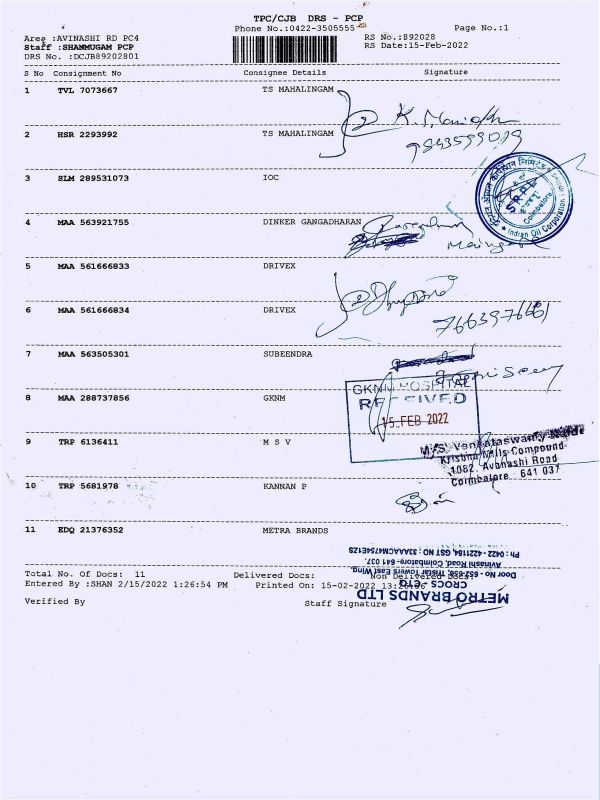 TPC/CJB DRS - PCP
Phone No.:0422-3505555
Page No.:1
Area :AVINASHI RD PC4
RS No.:892028
Staff :SHANMUGAM PCP
RS Date:15-Feb-2022
DRS No. :DCJB89202801
S No Consignment No Consignee Details Signature
1 TVL 7073667 TS MAHALINGAM
2 HSR 2293992 TS MAHALINGAM
3 SLM 289531073 IOC
Coimbatore
Indian Oil Corporation
4 MAA 563921755 DINKER GANGADHARAN
5 MAA 561666833 DRIVEX
6 MAA 561666834 DRIVEX
7 MAA 563505301 SUBEENDRA
8 MAA 288737856 GKNM
GKNM HOSPITAL
RECEIVED
15 FEB 2022
9 TRP 6136411 M S V
M/S. Venkataswamy Naidu
Krishna Mills Compound
1082, Avanashi Road
Coimbatore 641 037
10 TRP 5681978 KANNAN P
11 EDQ 21376352 METRA BRANDS
METRO BRANDS LTD
CROCS - ETQ
Door No - 652-656, Tristar Towers East Wing,
Avinashi Road, Coimbatore- 641 037.
Ph : 0422 - 4221184, GST NO : 33AAACM4754E1ZS
Total No. Of Docs: 11 Delivered Docs: Non Delivered Docs:
Entered By :SHAN 2/15/2022 1:26:54 PM Printed On: 15-02-2022
Verified By Staff Signature